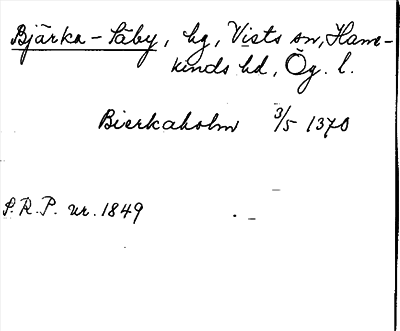 Bjärka-Säby, hg, Vists sn, Hane-
kinds hd, Ög. l.
Bierkaholm 3/5 1370
S.R.P. nr. 1849